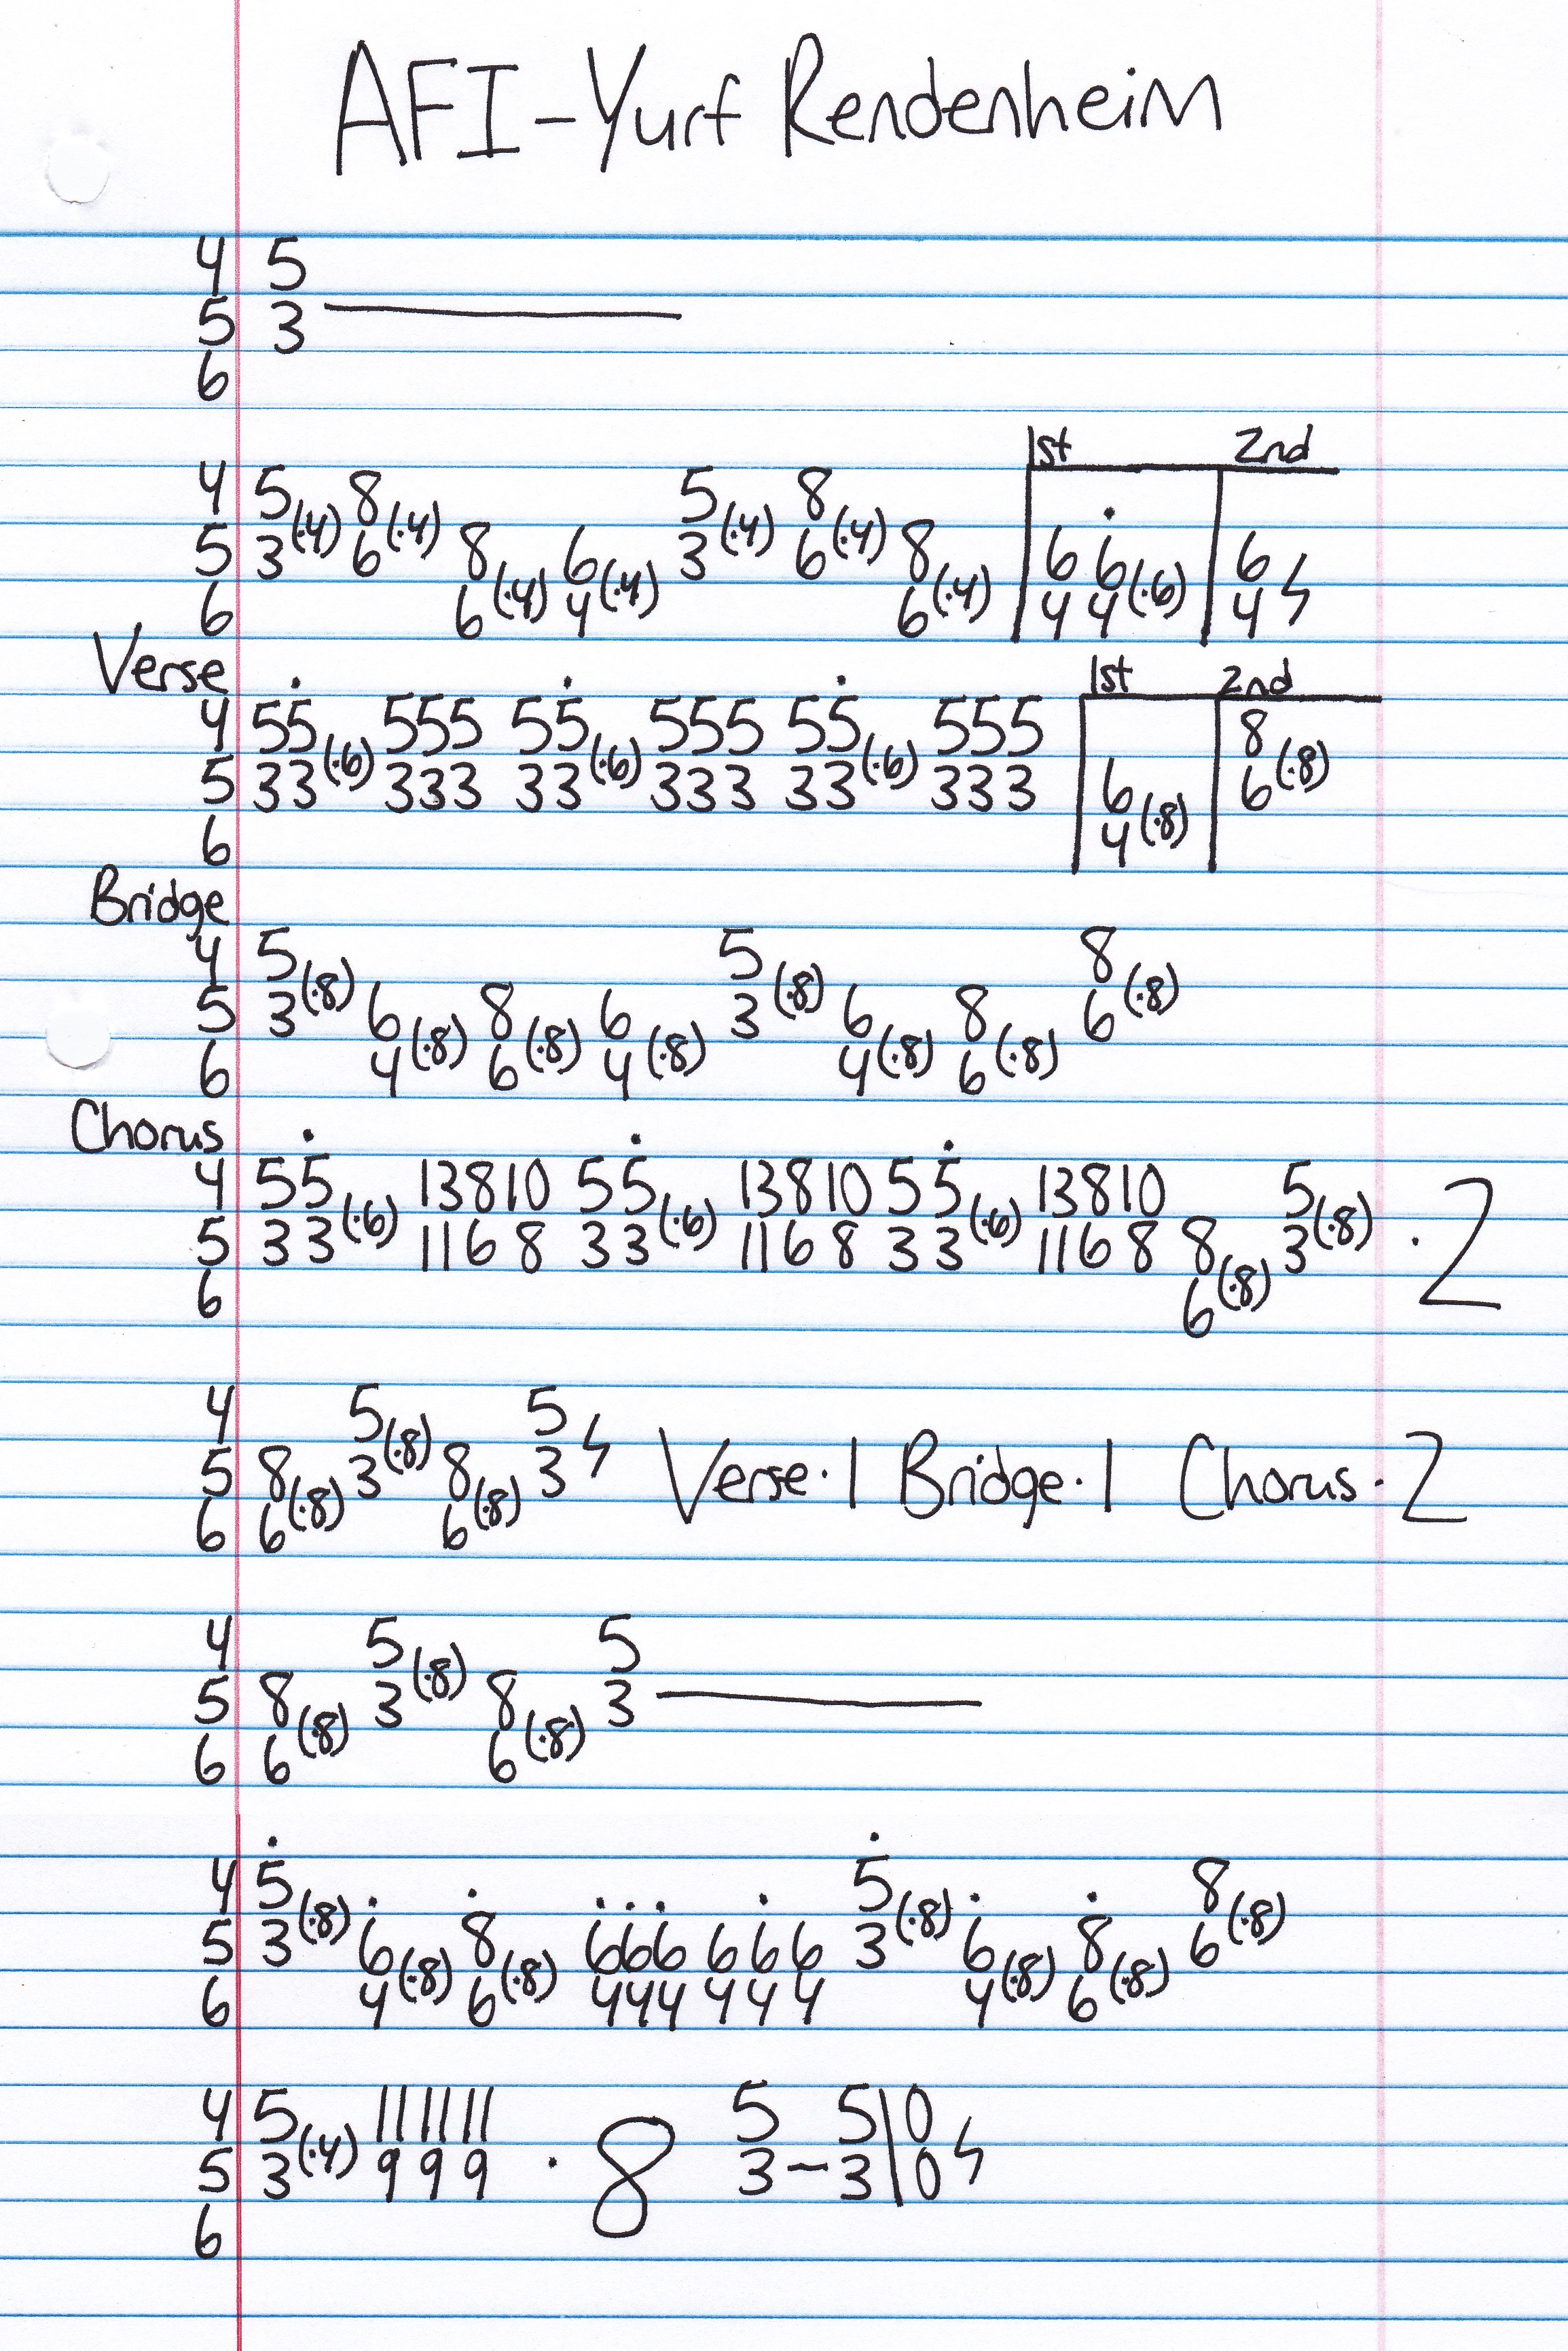 AFI-Yurf Rendenheim
4 5
5 3 ————
6
1st 2nd
4 5(·4) 8(·4) 5(·4) 8(·4)
5 3 6 8(·4) 6(·4) 3 6 8(·4) 6 6(·6) 6
6 6 4 6 4 4 4
Verse 1st 2nd
4 55(·6) 555 55(·6) 555 55(·6) 555 8(·8)
5 33 333 33 333 33 333 6(·8) 6
6 4
Bridge
4 5(·8) 5(·8) 8(·8)
5 3 6(·8) 8(·8) 6(·8) 3 6(·8) 8(·8) 6
6 4 6 4 4 6
Chorus
4 55(·6) 13 8 10 55(·6) 13 8 10 55(·6) 13 8 10 5(·8) ·2
5 33 11 6 8 33 11 6 8 33 11 6 8 8(·8) 3
6 6
4 5(·8) 5
5 8(·8) 3 8(·8) 3 Verse·1 Bridge·1 Chorus·2
6 6 6
4 5(·8) 5
5 8(·8) 3 8(·8) 3 ————
6 6 6
4 5(·8) 5(·8) 8(·8)
5 3 6(·8) 8(·8) 666 666 3 6(·8) 8(·8) 6
6 4 6 444 444 4 6
4 5(·4) 11 11 11 ·8 5 5\0
5 3 9 9 9 3–3\0
6